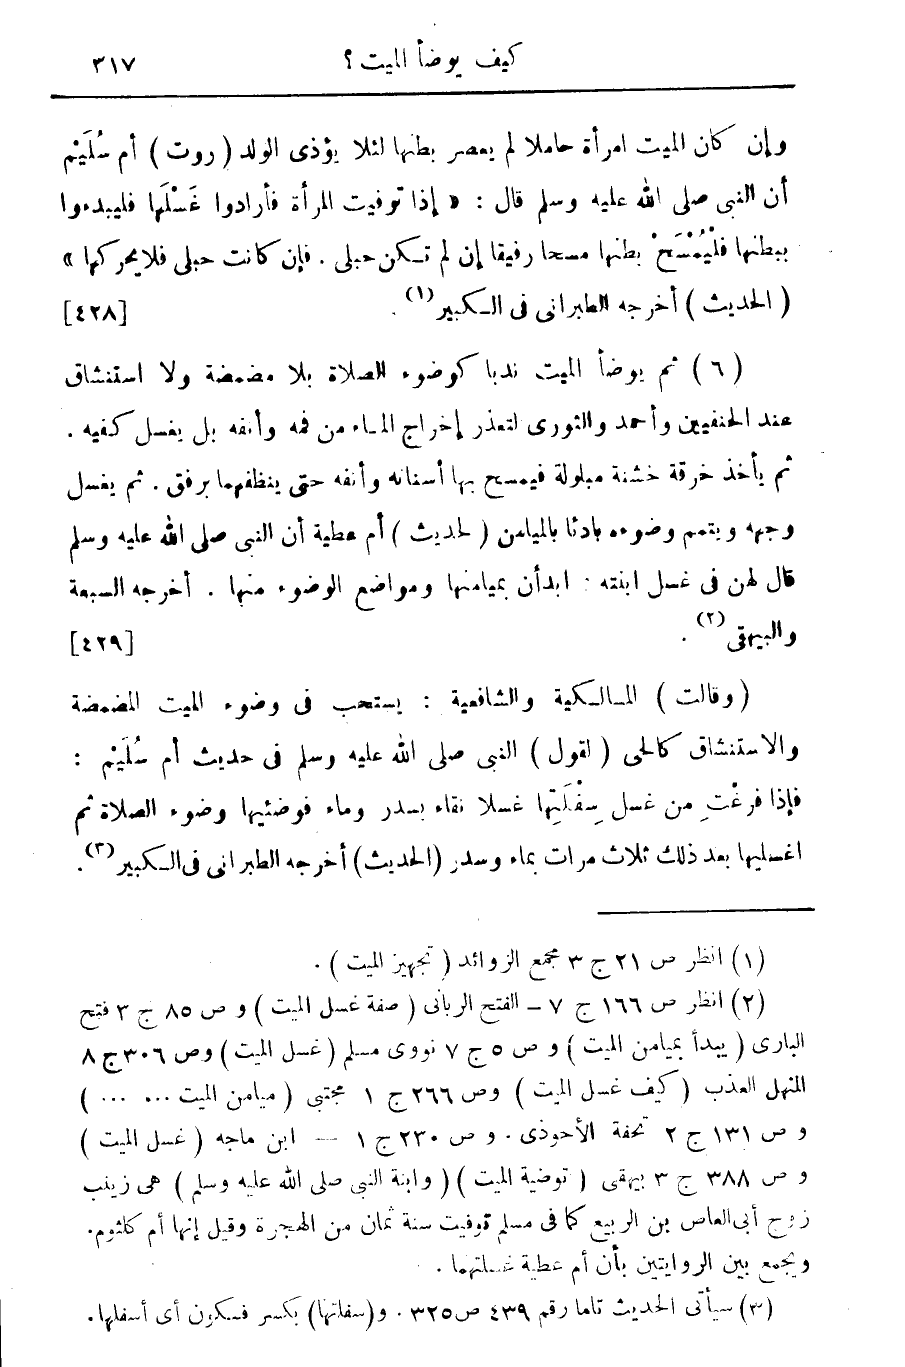 كيف يوضأ الميت ؟ ٣١٧
وإن كان الميت امرأة حاملا لم يعصر بطنها لئلا يؤذى الولد ( روت ) أم سُلَيْم
أن النبى صلى الله عليه وسلم قال : « إذا توفيت المرأة فأرادوا غَسْلَها فليبدءوا
ببطنها فلْيُمْسَحْ بطنها مسحا رفيقا إن لم تكن حبلى . فإن كانت حبلى فلا يحركها »
( الحديث ) أخرجه الطبرانى فى الكبير (١) . [٤٢٨]
( ٦ ) ثم يوضأ الميت ندبا كوضوء الصلاة بلا مضمضة ولا استنشاق
عند الحنفيين وأحمد والثورى لتعذر إخراج الماء من فمه وأنفه بل يغسل كفيه .
ثم يأخذ خرقة خشنة مبلولة فيمسح بها أسنانه وأنفه حتى ينظفهما برفق . ثم يغسل
وجهه ويتمم وضوءه بادئا بالميامن ( لحديث ) أم عطية أن النبى صلى الله عليه وسلم
قال لهن فى غسل ابنته : ابدأن بميامنها ومواضع الوضوء منها . أخرجه السبعة
والبيهقى (٢) . [٤٢٩]
( وقالت ) المالكية والشافعية : يستحب فى وضوء الميت المضمضة
والاستنشاق كالحى ( لقول ) النبى صلى الله عليه وسلم فى حديث أم سُلَيْم :
فإذا فرغْتِ من غسل سِفْلَتِها غسلا نقاء بسدر وماء فوضئيها وضوء الصلاة ثم
اغسليها بعد ذلك ثلاث مرات بماء وسدر (الحديث) أخرجه الطبرانى فى الكبير (٣) .
(١) انظر ص ٢١ ج ٣ مجمع الزوائد ( تجهيز الميت ) .
(٢) انظر ص ١٦٦ ج ٧ – الفتح الربانى ( صفة غسل الميت ) و ص ٨٥ ج ٣ فتح
البارى ( يبدأ بميامن الميت ) و ص ٥ ج ٧ نووى مسلم ( غسل الميت ) وص ٣٠٦ ج ٨
المنهل العذب ( كيف غسل الميت ) وص ٢٦٦ ج ١ مجتبى ( ميامن الميت ... ... )
و ص ١٣١ ج ٢ تحفة الأحوذى . و ص ٢٣٠ ج ١ — ابن ماجه ( غسل الميت )
و ص ٣٨٨ ج ٣ بيهقى ( توضية الميت ) ( وابنة النبى صلى الله عليه وسلم ) هى زينب
زوج أبى العاص بن الربيع كما فى مسلم توفيت سنة ثمان من الهجرة وقيل إنها أم كلثوم .
ويجمع بين الروايتين بأن أم عطية غسلتهما .
(٣) سيأتى الحديث تاما رقم ٤٣٩ ص ٣٢٥ . و(سفلتها) بكسر فسكون أى أسفلها .